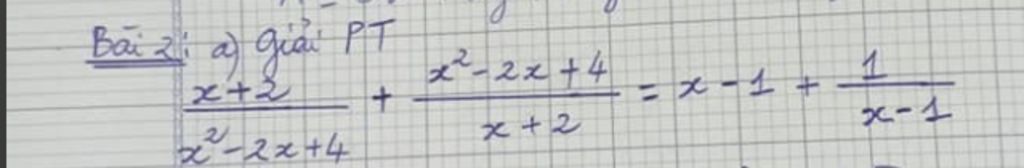 Bài 2: a) Giải PT
x+2 / x²-2x+4 + x²-2x+4 / x+2 = x-1 + 1 / x-1